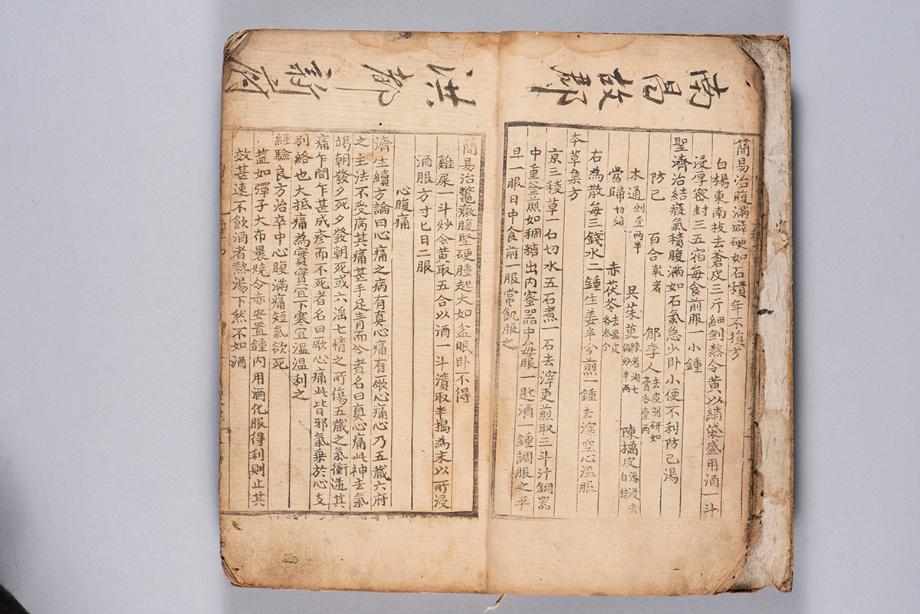 南昌故郡
簡易治腹滿癖硬如石積年不損方
白楊東南枝去蒼皮三斤細剉熬令黃以絹袋盛用酒一斗
浸厚密封三五宿每食前服一小鍾
聖濟治結瘕氣積腹滿如石氣急少卧小便不利防己湯
防己 百合 郁李人
木通 吳茱萸 陳橘皮
當歸切焙 赤茯苓去黑皮
右為散每三錢水二鍾生姜半分煎一鍾去滓空心溫服
夲草集方
京三稜草一石切水五石煮一石去滓更煎取三斗汁銅器
中重釜煎如稠糖出內密器中每服一匙酒一鍾調服之平
旦一服日中食前一服常飢服之
洪都新府
簡易治鱉瘕腹堅硬腫起大如盆眠卧不得
雞屎一斗炒令黃取五合以酒一斗漬取半搗為末以所浸
酒服方寸匕日二服
心腹痛
濟生續方論曰心痛之病有真心痛有厥心痛心乃五蔵六府
之主法不受病其痛甚手足青而冷者名曰真心痛此神去氣
竭朝發夕死夕發朝死或六滛七情之所傷五蔵之氣衝逆其
痛乍間乍甚成疹而不死者名曰厥心痛此皆邪氣乗於心支
別絡也大抵痛為實實宜下寒宜溫溫利之
經驗良方治卒中心腹滿痛短氣欲死
盐如彈子大布裹燒令赤安置鍾內用酒化服得利則止其
效甚速不飲酒者熱湯下然不如酒